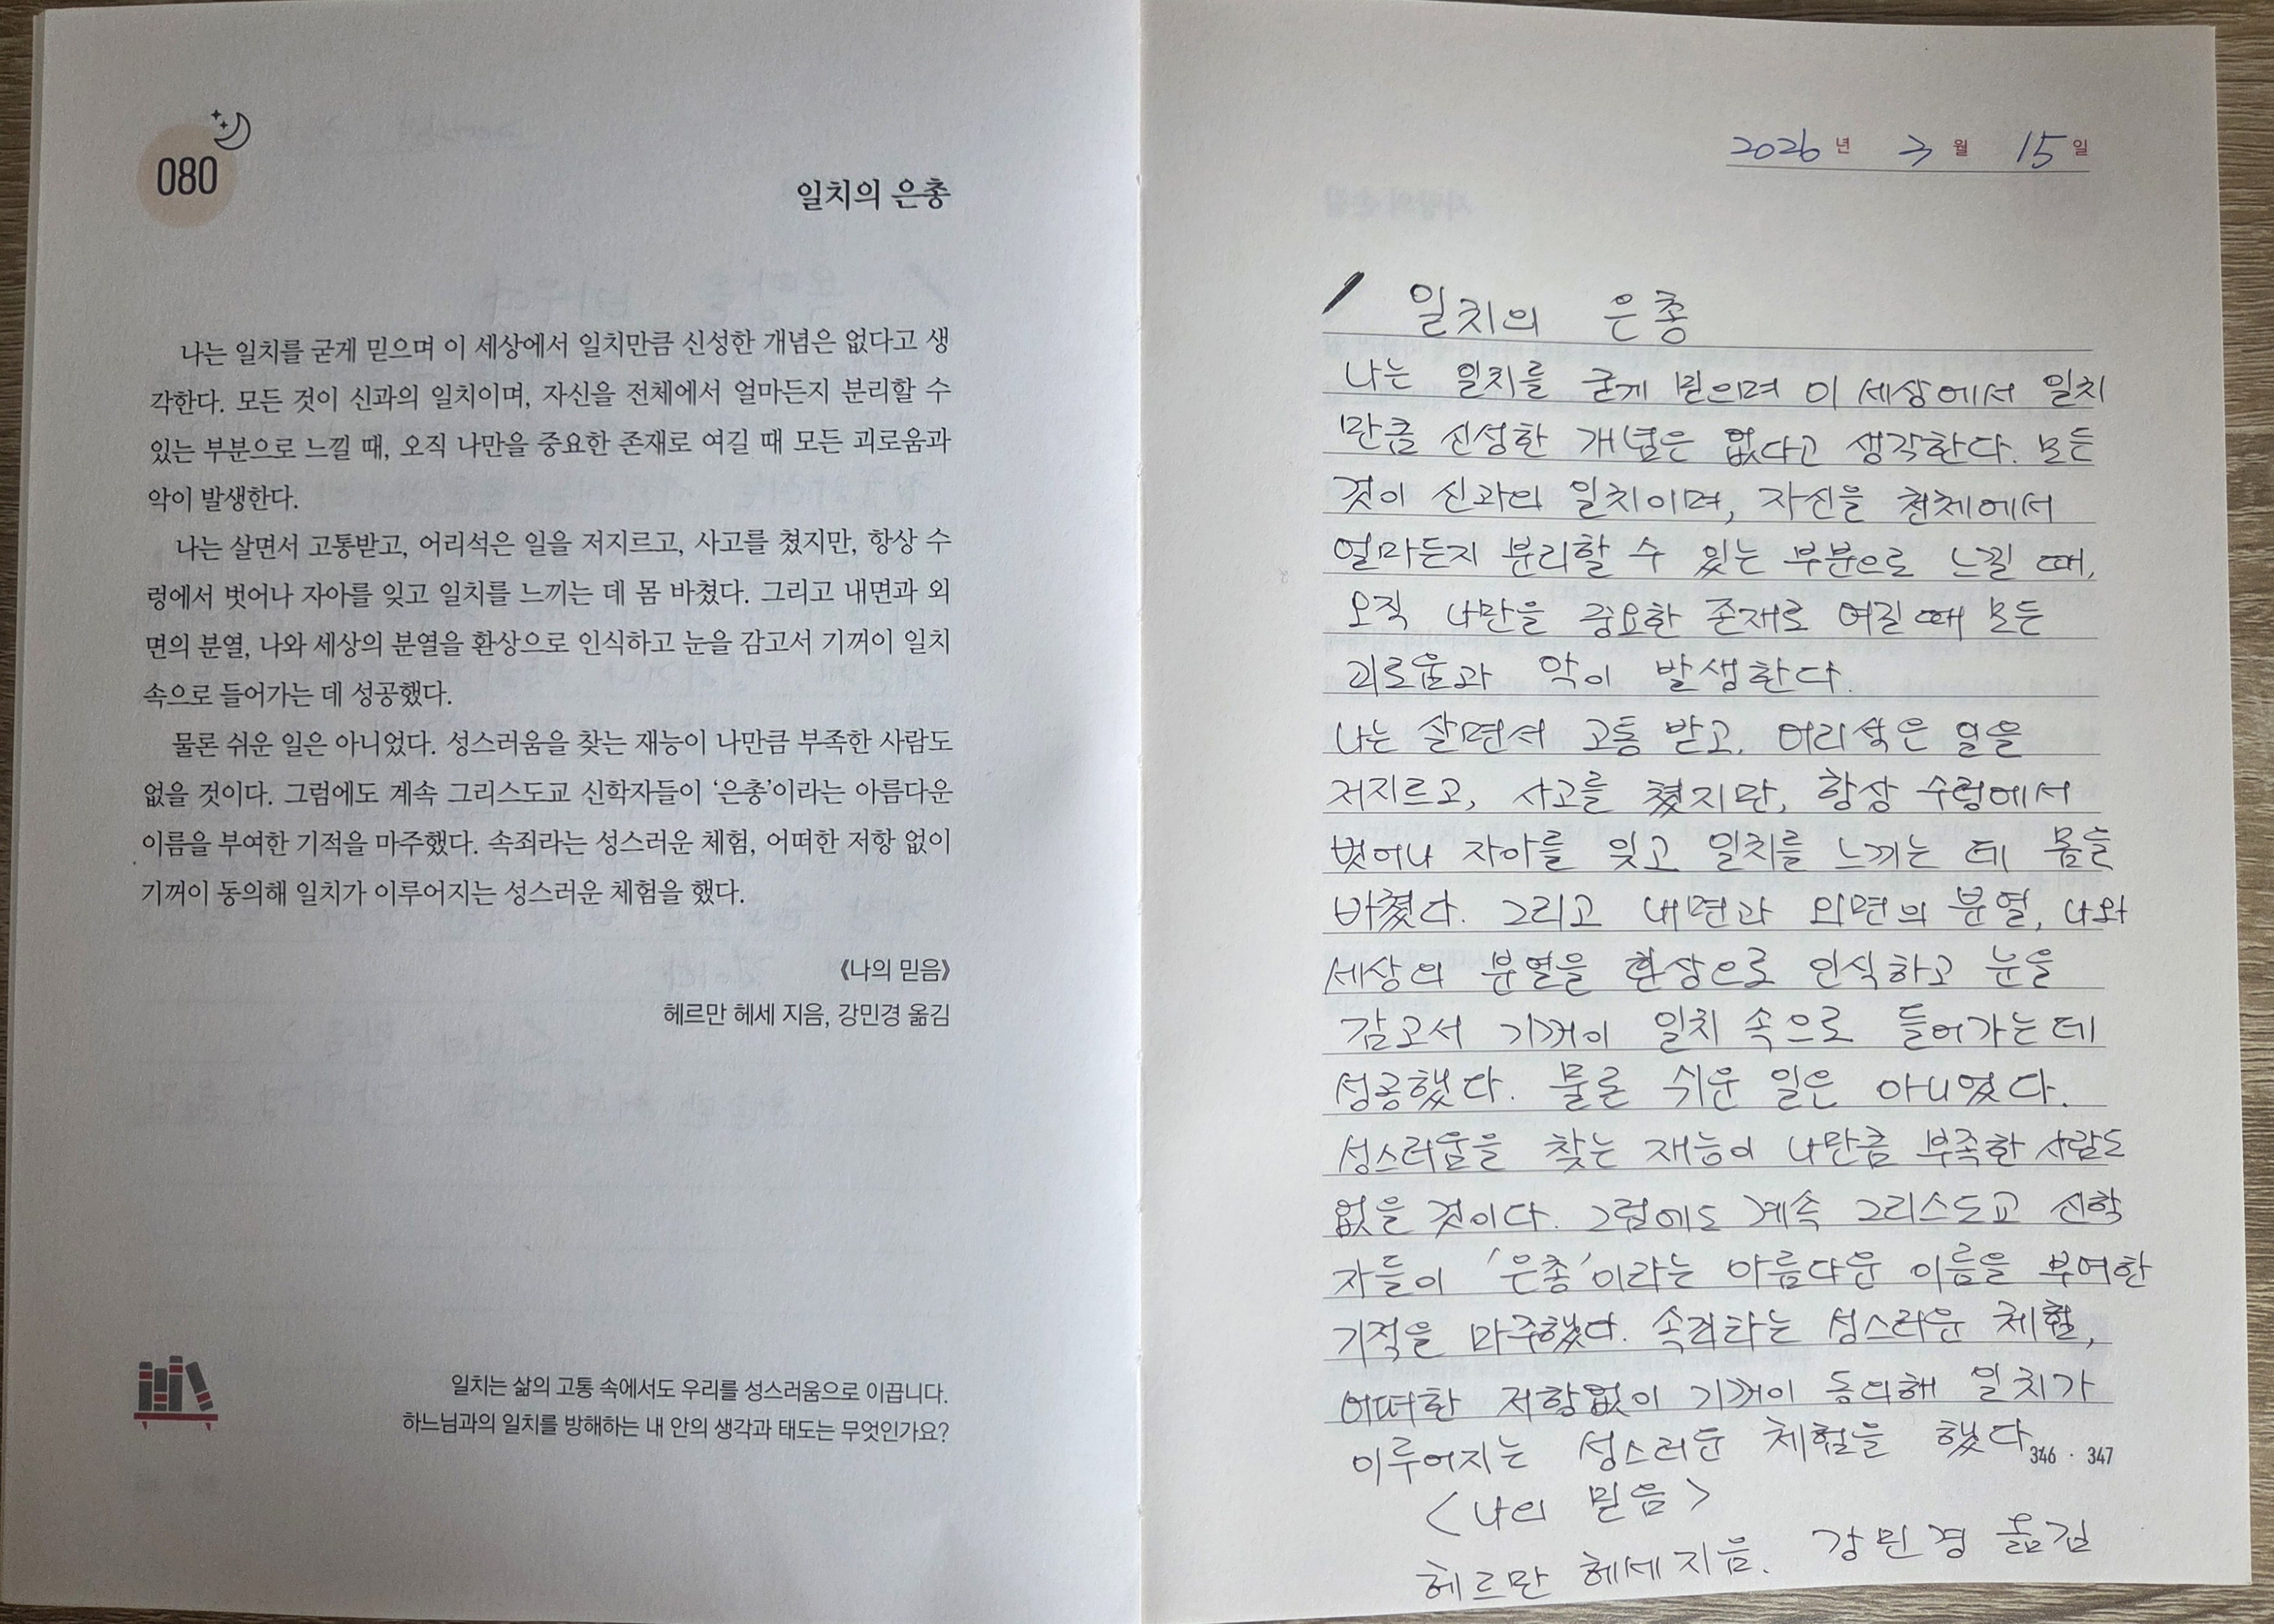 080
일치의 은총
나는 일치를 굳게 믿으며 이 세상에서 일치만큼 신성한 개념은 없다고 생
각한다. 모든 것이 신과의 일치이며, 자신을 전체에서 얼마든지 분리할 수
있는 부분으로 느낄 때, 오직 나만을 중요한 존재로 여길 때 모든 괴로움과
악이 발생한다.
나는 살면서 고통받고, 어리석은 일을 저지르고, 사고를 쳤지만, 항상 수
렁에서 벗어나 자아를 잊고 일치를 느끼는 데 몸 바쳤다. 그리고 내면과 외
면의 분열, 나와 세상의 분열을 환상으로 인식하고 눈을 감고서 기꺼이 일치
속으로 들어가는 데 성공했다.
물론 쉬운 일은 아니었다. 성스러움을 찾는 재능이 나만큼 부족한 사람도
없을 것이다. 그럼에도 계속 그리스도교 신학자들이 ‘은총’이라는 아름다운
이름을 부여한 기적을 마주했다. 속죄라는 성스러운 체험, 어떠한 저항 없이
기꺼이 동의해 일치가 이루어지는 성스러운 체험을 했다.
《나의 믿음》
헤르만 헤세 지음, 강민경 옮김
일치는 삶의 고통 속에서도 우리를 성스러움으로 이끕니다.
하느님과의 일치를 방해하는 내 안의 생각과 태도는 무엇인가요?
2026년 3월 15일
일치의 은총
나는 일치를 굳게 믿으며 이 세상에서 일치
만큼 신성한 개념은 없다고 생각한다. 모든
것이 신과의 일치이며, 자신을 전체에서
얼마든지 분리할 수 있는 부분으로 느낄 때,
오직 나만을 중요한 존재로 여길 때 모든
괴로움과 악이 발생한다.
나는 살면서 고통 받고, 어리석은 일을
저지르고, 사고를 쳤지만, 항상 수렁에서
벗어나 자아를 잊고 일치를 느끼는 데 몸을
바쳤다. 그리고 내면과 외면의 분열, 나와
세상의 분열을 환상으로 인식하고 눈을
감고서 기꺼이 일치 속으로 들어가는 데
성공했다. 물론 쉬운 일은 아니였다.
성스러움을 찾는 재능이 나만큼 부족한 사람도
없을 것이다. 그럼에도 계속 그리스도교 신학
자들이 '은총'이라는 아름다운 이름을 부여한
기적을 마주했다. 속죄라는 성스러운 체험,
어떠한 저항없이 기꺼이 동의해 일치가
이루어지는 성스러운 체험을 했다.
346 · 347
<나의 믿음>
헤르만 헤세 지음. 강민경 옮김